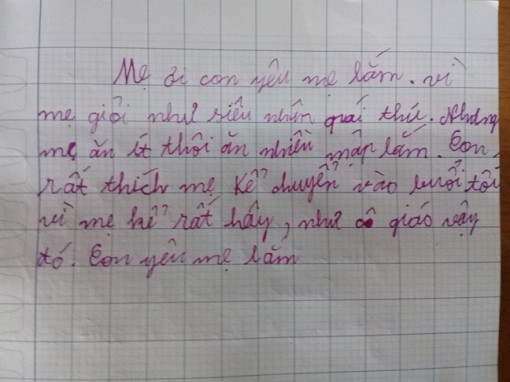 Mẹ ơi con yêu mẹ lắm. vì
mẹ giỏi như siêu nhân quái thú. Nhưng
mẹ ăn ít thôi ăn nhiều mập lắm. Con
rất thích mẹ kể chuyển vào buổi tối
vì mẹ kể rất hây, như cô giáo vậy
đó. Con yêu mẹ lắm